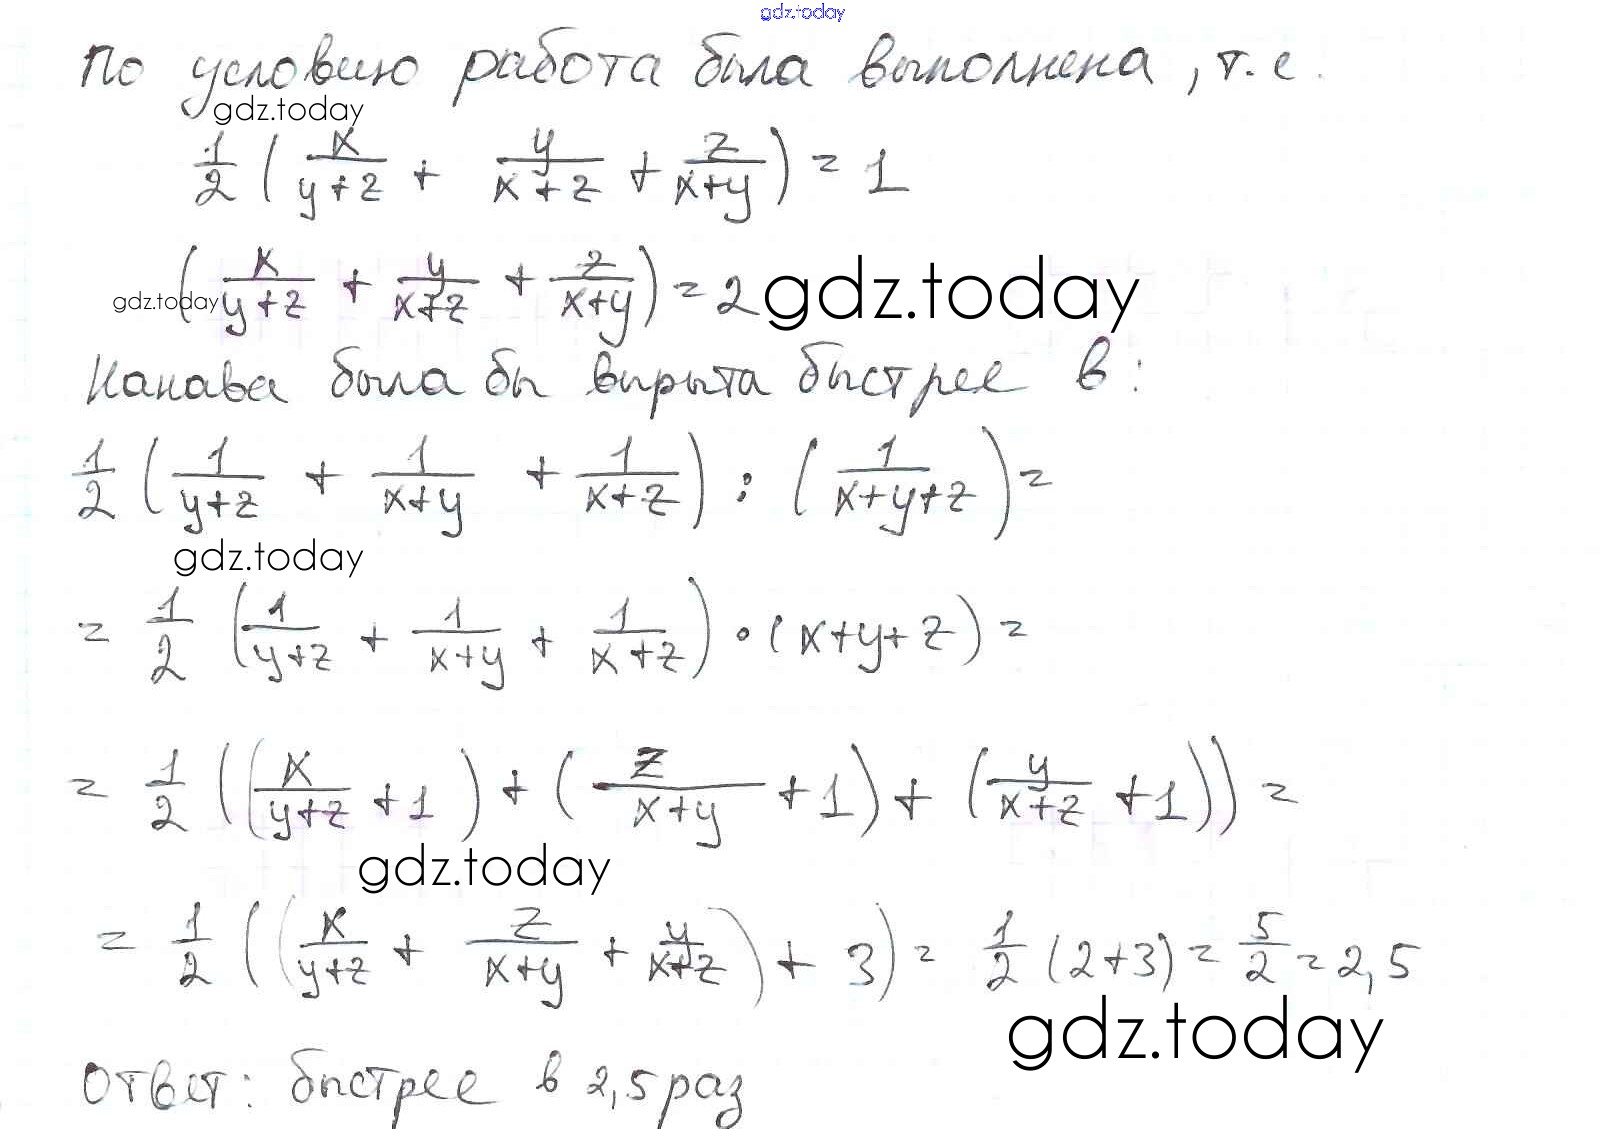 gdz.today
По условию работа была выполнена, т.е.
gdz.today
1/2 (x/(y+z) + y/(x+z) + z/(x+y)) = 1
(x/(y+z) + y/(x+z) + z/(x+y)) = 2
gdz.today
gdz.today
Канава была бы вырыта быстрее в:
1/2 (1/(y+z) + 1/(x+y) + 1/(x+z)) : (1/(x+y+z)) =
gdz.today
= 1/2 (1/(y+z) + 1/(x+y) + 1/(x+z)) · (x+y+z) =
= 1/2 ((x/(y+z) + 1) + (z/(x+y) + 1) + (y/(x+z) + 1)) =
gdz.today
= 1/2 ((x/(y+z) + z/(x+y) + y/(x+z)) + 3) = 1/2 (2+3) = 5/2 = 2,5
gdz.today
Ответ: быстрее в 2,5 раз